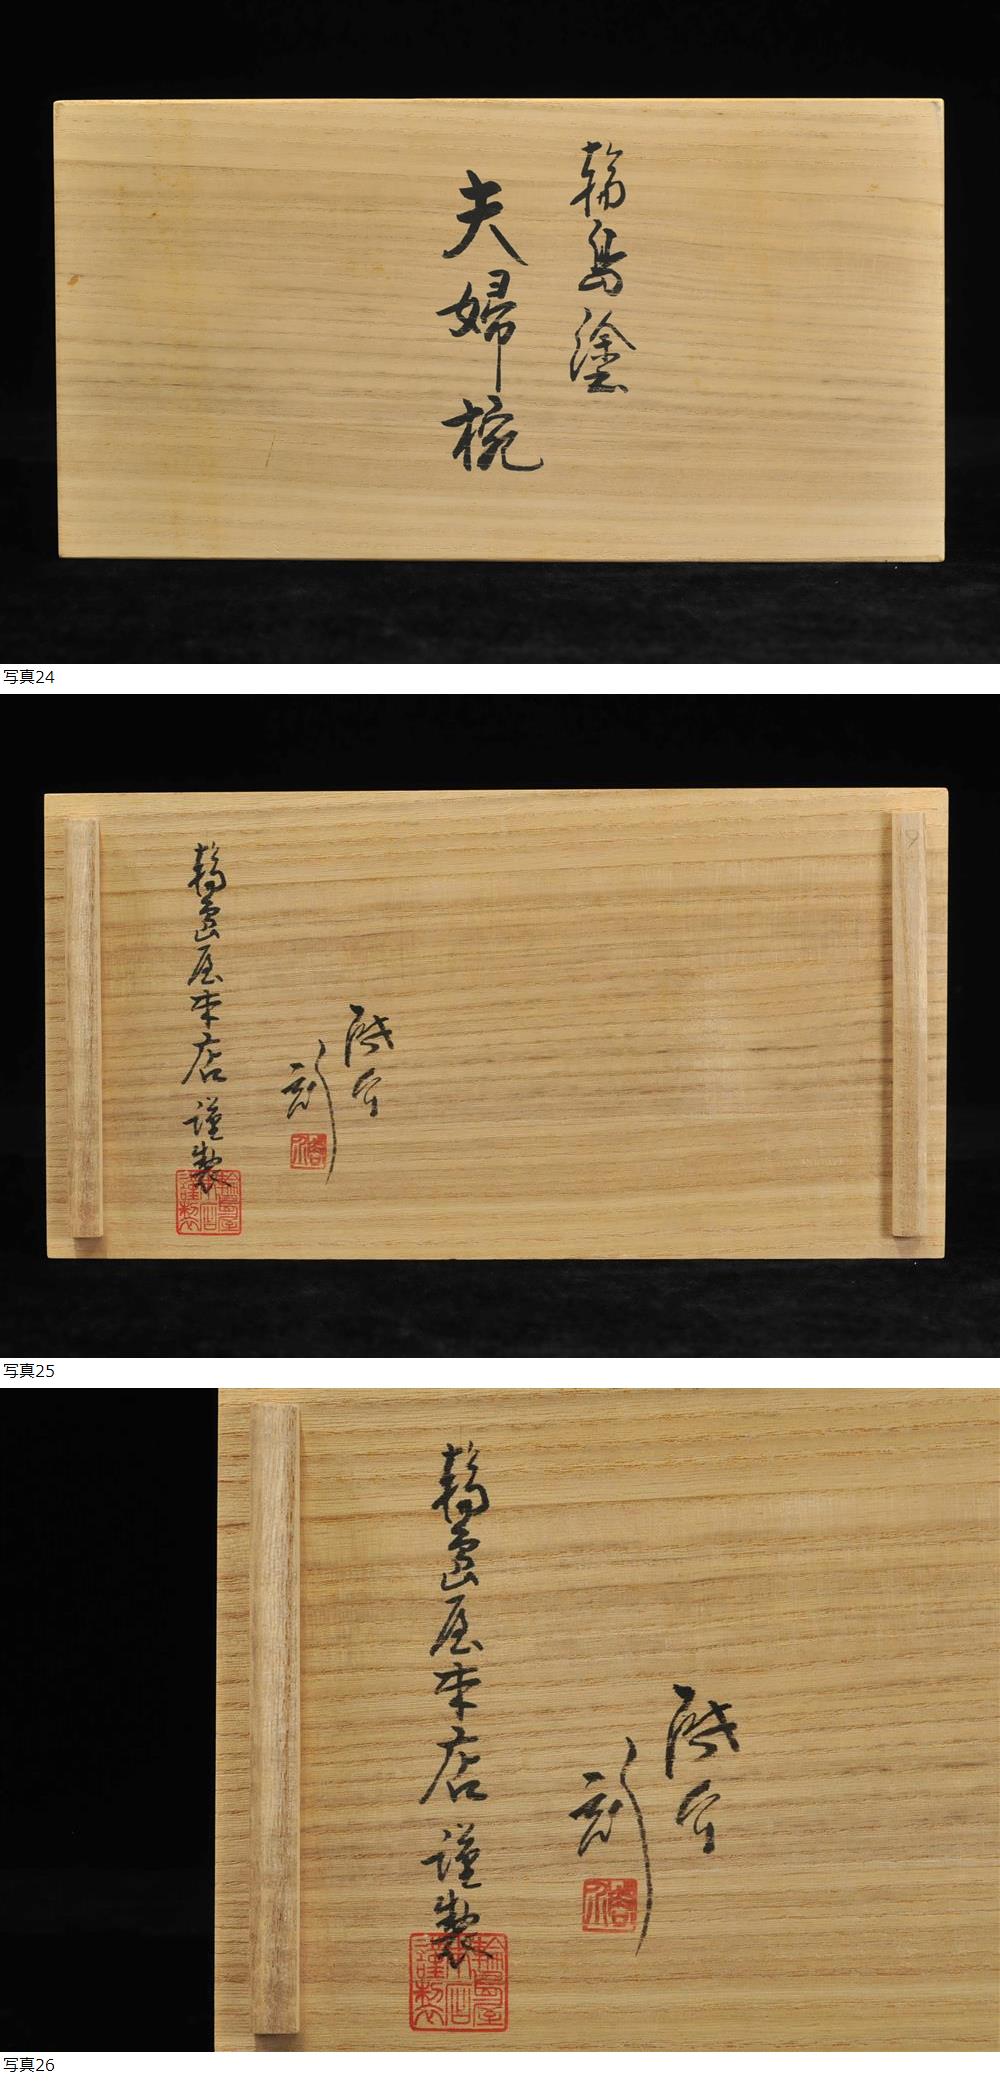 輪島塗
夫婦椀
写真24
輪島屋本店謹製
写真25
輪島屋本店謹製
輪島屋
本店
謹製
写真26